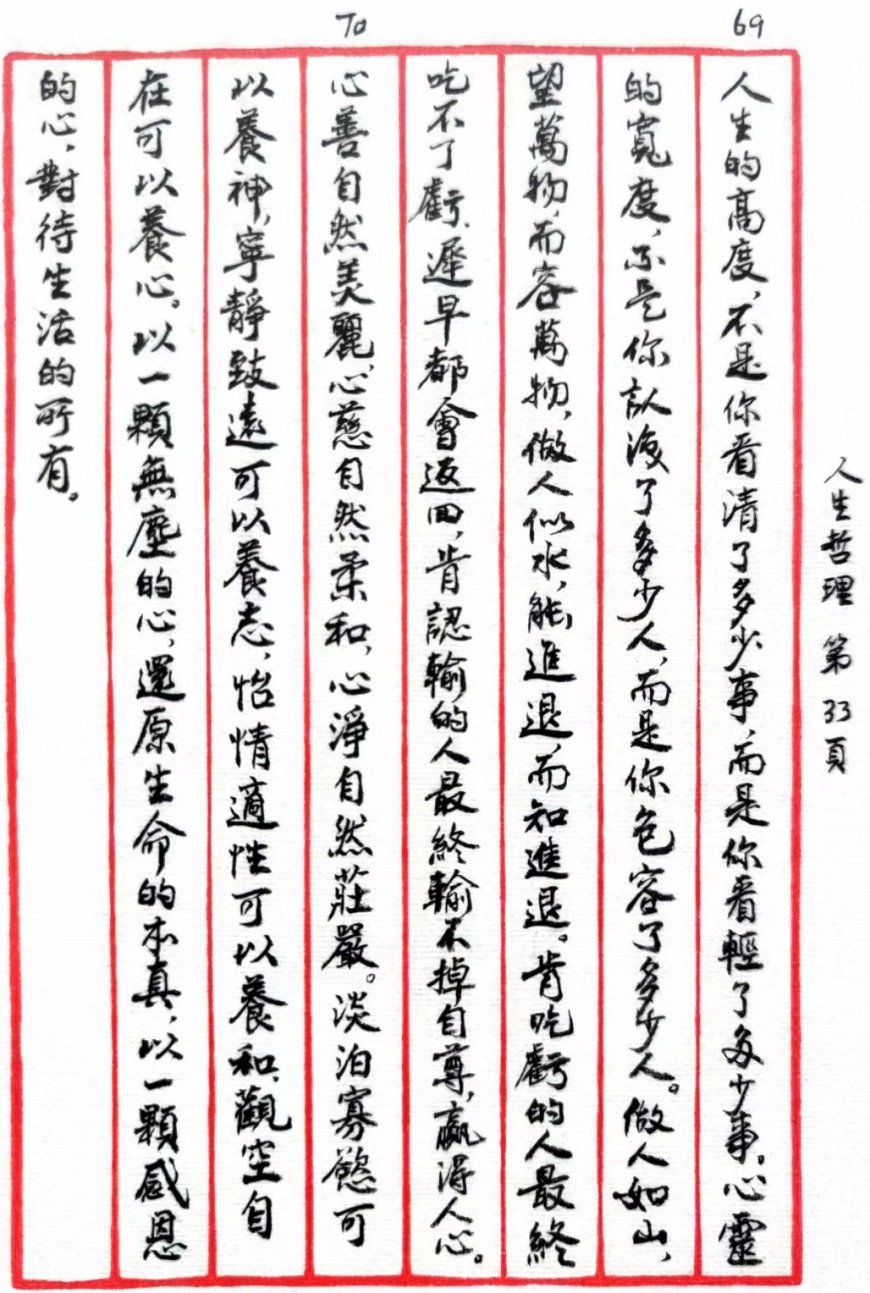 人生哲理 第33頁
69
人生的高度，不是你看清了多少事，而是你看輕了多少事。心靈
的寬度，不是你認識了多少人，而是你包容了多少人。做人如山，
望萬物，而容萬物，做人似水，能進退，而知進退。肯吃虧的人最終
吃不了虧，遲早都會返回，肯認輸的人最終輸不掉自尊，贏得人心。
70
心善自然美麗，心慈自然柔和，心淨自然莊嚴。淡泊寡慾可
以養神，寧靜致遠可以養志，怡情適性可以養和，觀空自
在可以養心。以一顆無塵的心，還原生命的本真，以一顆感恩
的心，對待生活的所有。